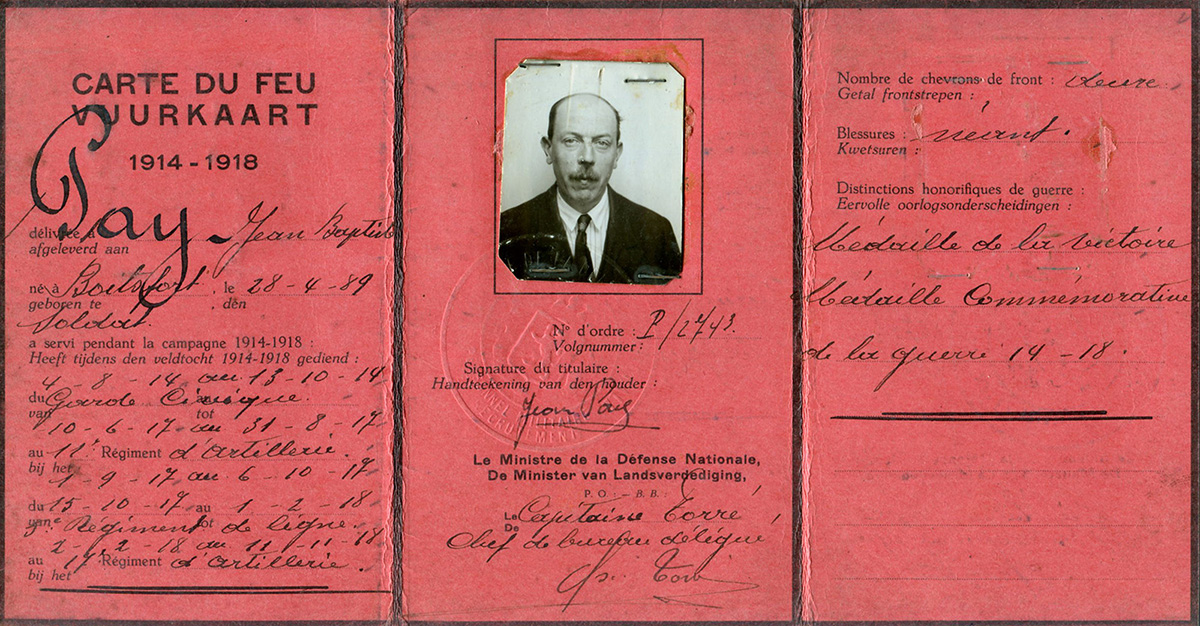 CARTE DU FEU
VUURKAART
1914 - 1918
délivrée à Pay Jean Baptiste
afgeleverd aan
né à Boitsfort, le 28 - 4 - 89
geboren te , den
Soldat.
a servi pendant la campagne 1914-1918 :
Heeft tijdens den veldtocht 1914-1918 gediend :
4 - 8 - 14 au 13 - 10 - 14
du Garde Civique.
van tot
10 - 6 - 17 au 31 - 8 - 17
au 11e Régiment d'artillerie.
bij het
1 - 9 - 17 au 6 - 10 - 17
du 15 - 10 - 17 au 1 - 2 - 18
van tot
Régiment de ligne.
2 - 2 - 18 au 11 - 11 - 18
au 17 Régiment d'artillerie.
bij het
N° d'ordre : P/2743.
Volgnummer :
Signature du titulaire :
Handteekening van den houder :
Jean Pay
Le Ministre de la Défense Nationale,
De Minister van Landsverdediging,
P. O. - B. B. :
Le Capitaine Torré,
De
Chef de bureau délégué
Torré
Nombre de chevrons de front : deux.
Getal frontstrepen :
Blessures : néant.
Kwetsuren :
Distinctions honorifiques de guerre :
Eervolle oorlogsonderscheidingen :
Médaille de la Victoire
Médaille Commémorative
de la guerre 14 - 18.